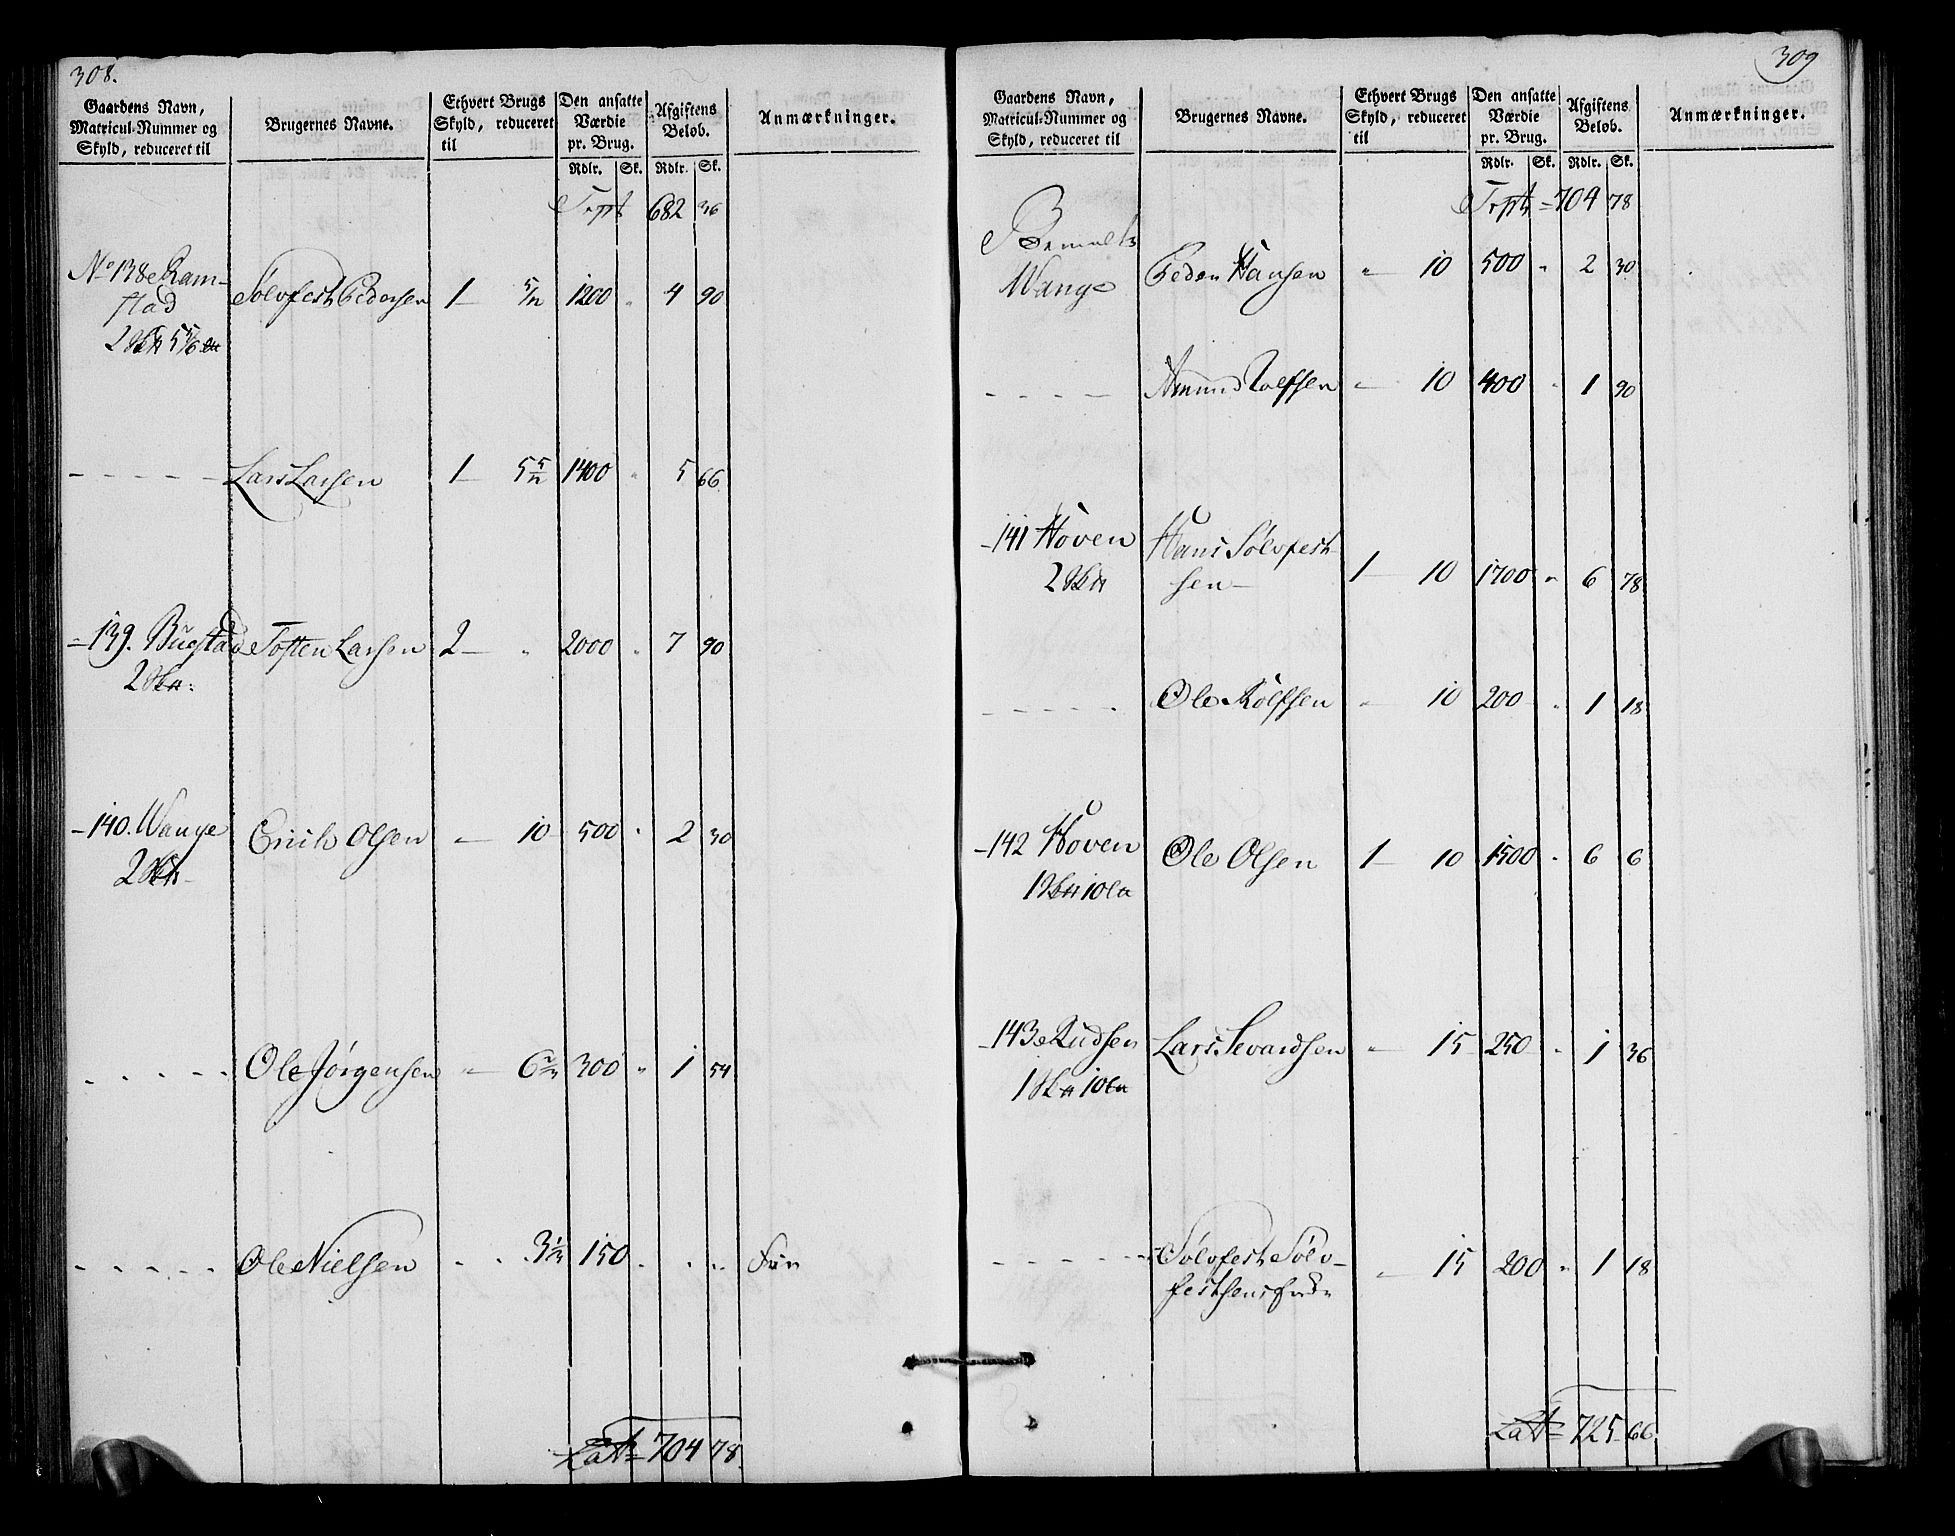 308.
Gaardens Navn, Matricul-Nummer og Skyld, reduceret til | Brugernes Navne. | Ethvert Brugs Skyld, reduceret til | Den ansatte Værdie pr. Brug. | Afgiftens Beløb. | Anmærkninger.
Rdlr. | Sk. | Rdlr. | Sk.
Trpt 682 36
No 138 Ram-
stad
Sølvfest Pedersen 1 – 5/12 1200 " 4 90
2 Sk℔ 5 5/6
– – – – – Lars Larsen 1 – 5 5/12 1400 " 5 66
– 139. Bugstad Tosten Larsen 2 – " 2000 " 7 90
2 Sk℔:
– 140. Wange Erich Olsen – 10 500 " 2 30
2 Sk℔
– – – – – Ole Jørgensen – 6 2/3 300 " 1 54
– – – – – Ole Nielsen " " 3 1/3 150 " " " Frie
Lat 704 78
309
Gaardens Navn, Matricul-Nummer og Skyld, reduceret til | Brugernes Navne. | Ethvert Brugs Skyld, reduceret til | Den ansatte Værdie pr. Brug. | Afgiftens Beløb. | Anmærkninger.
Rdlr. | Sk. | Rdlr. | Sk.
Trpt = 704 78
Bemelte
Wange Peder Hansen " 10 500 " 2 30
– – – – Amund Rolfsen – 10 400 " 1 90
– 141 Hoven Hans Sølvfest-
2 Sk℔ sen – 1 – 10 1700 " 6 78
– – – – – Ole Rolfsen " 10 200 " 1 18
– 142 Hoven Ole Olsen 1 – 10 1500 " 6 6
1 Sk℔ 10
– 143 Rudsen Lars Sevardsen " 15 250 " 1 36
1 Sk℔ 10
– – – – – Sølvfest Sølv-
festsens 15 200 " 1 18
Lat = 725 66